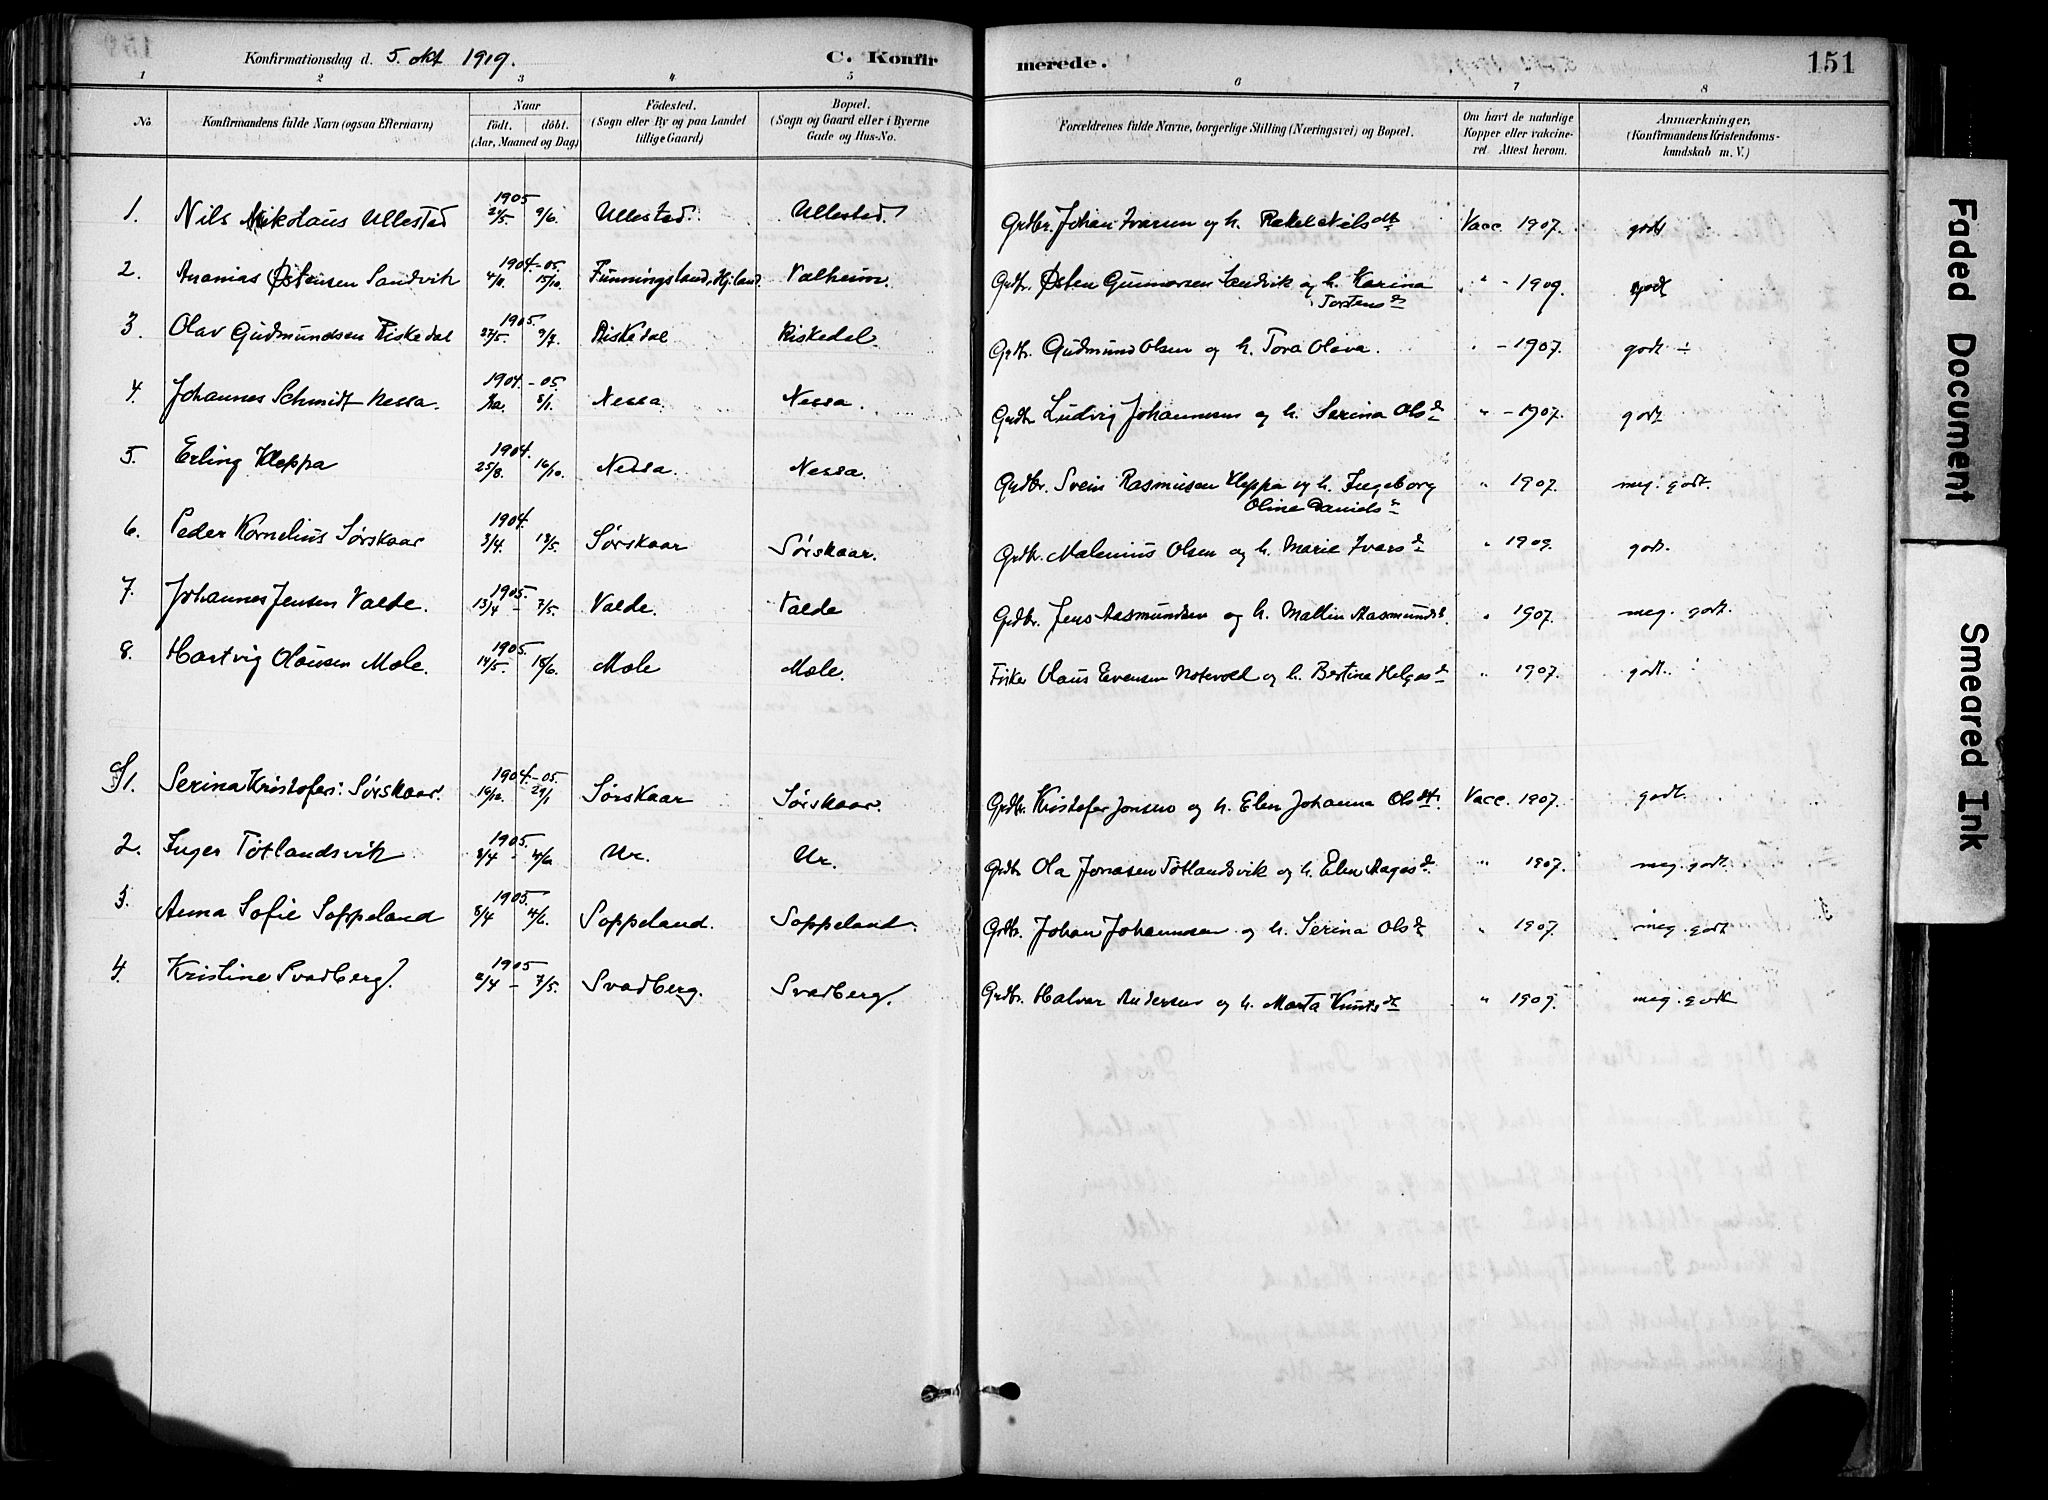 Konfirmationsdag d. 5. okt 1919. C. Konfirmerede. 151
1 2 3 4 5 6 7 8
No. Konfirmandens fulde Navn (ogsaa Efternavn) Naar født. døbt. (Aar, Maaned og Dag) Fødested. (Sogn eller By og paa Landet tillige Gaard) Bopæl. (Sogn og Gaard eller i Byerne Gade og Hus-No. Forældrenes fulde Navne, borgerlige Stilling (Næringsvei) og Bopæl. Om havt de naturlige Kopper eller vakcineret Attest herom. Anmærkninger, (Konfirmandens Kristendomskundskab m. V.)
1. Nils Nikolaus Ullestad 1905 9/6. Ullestad. Ullestad. Grdbr. Johan Ivarsen og h. Rakel Nilsdt Vacc. 1907. godt
2. Ananias Østensen Sandvik 1904.-05. 15/10. Hj.land. Valheim. Grdbr. Østen Gunnarsen Sandvik og h. Karina " - 1909. godt
Torstensd
3. Olav Gudmundsen Riskedal 1905. 27/5. 9/7. Riskedal Riskedal. Grdbr. Gudmund Olsen og h. Tora Olava. " - 1907. godt ÷
4. Johannes Schmidt Nessa. 1904.-05. 8/1. Nessa. Nessa. Grdbr Ludvig Johannesen og h. Serina Olsd " - 1907. godt
5. Erling Kleppa 1904. 25/8. 16/10. Nessa. Nessa. Grdbr. Svein Rasmusen Kleppa og h. Ingeborg " 1907. meg. godt.
Oline Danielsd
6. Peder Kornelius Sørskaar 1904. 3/4. 13/5. Sørskaar Sørskaar. Grdbr. Malenius Olsen og h. Marie Ivarsd " 1909. godt.
7. Johannes Jensen Valde. 1905. 13/4 - 7/5. Valde. Valde Grdbr. Jens Aasmundsen og h. Mallin Aasmundsd. " 1907. meg. godt.
8. Hartvig Olausen Mæle. 1905. 14/5. 18/6. Mæle Mæle. Fisker Olaus Evensen Notevoll og h. Bertina Helgesd " 1907. godt.
1. Serina Kristofers: Sørskaar. 1904.-05. 16/12. 29/1 Sørskaar Sørskaar. Grdbr. Kristofer Jonsen og h. Elen Johanna Olsdt. Vacc. 1907. godt.
2. Inger Tøtlandsvik 1905. 3/4 - 4/6. Ur. Ur. Grdbr Ola Jonasen Tøtlandsvik og h. Elen Aagesd. " 1907. meg. godt.
3. Anna Sofie Soppeland 1905. 8/4 4/6. Soppeland. Soppeland. Grdbr. Johan Johannesen og h. Serina Olsd " 1907. meg. godt
4. Kristine Svadberg. 1905 2/4 - 7/5. Svadberg. Svadberg. Grdbr. Halvar Andersen og h. Marta Knutsdt " 1909. meg. godt
Faded Document
Smeared Ink